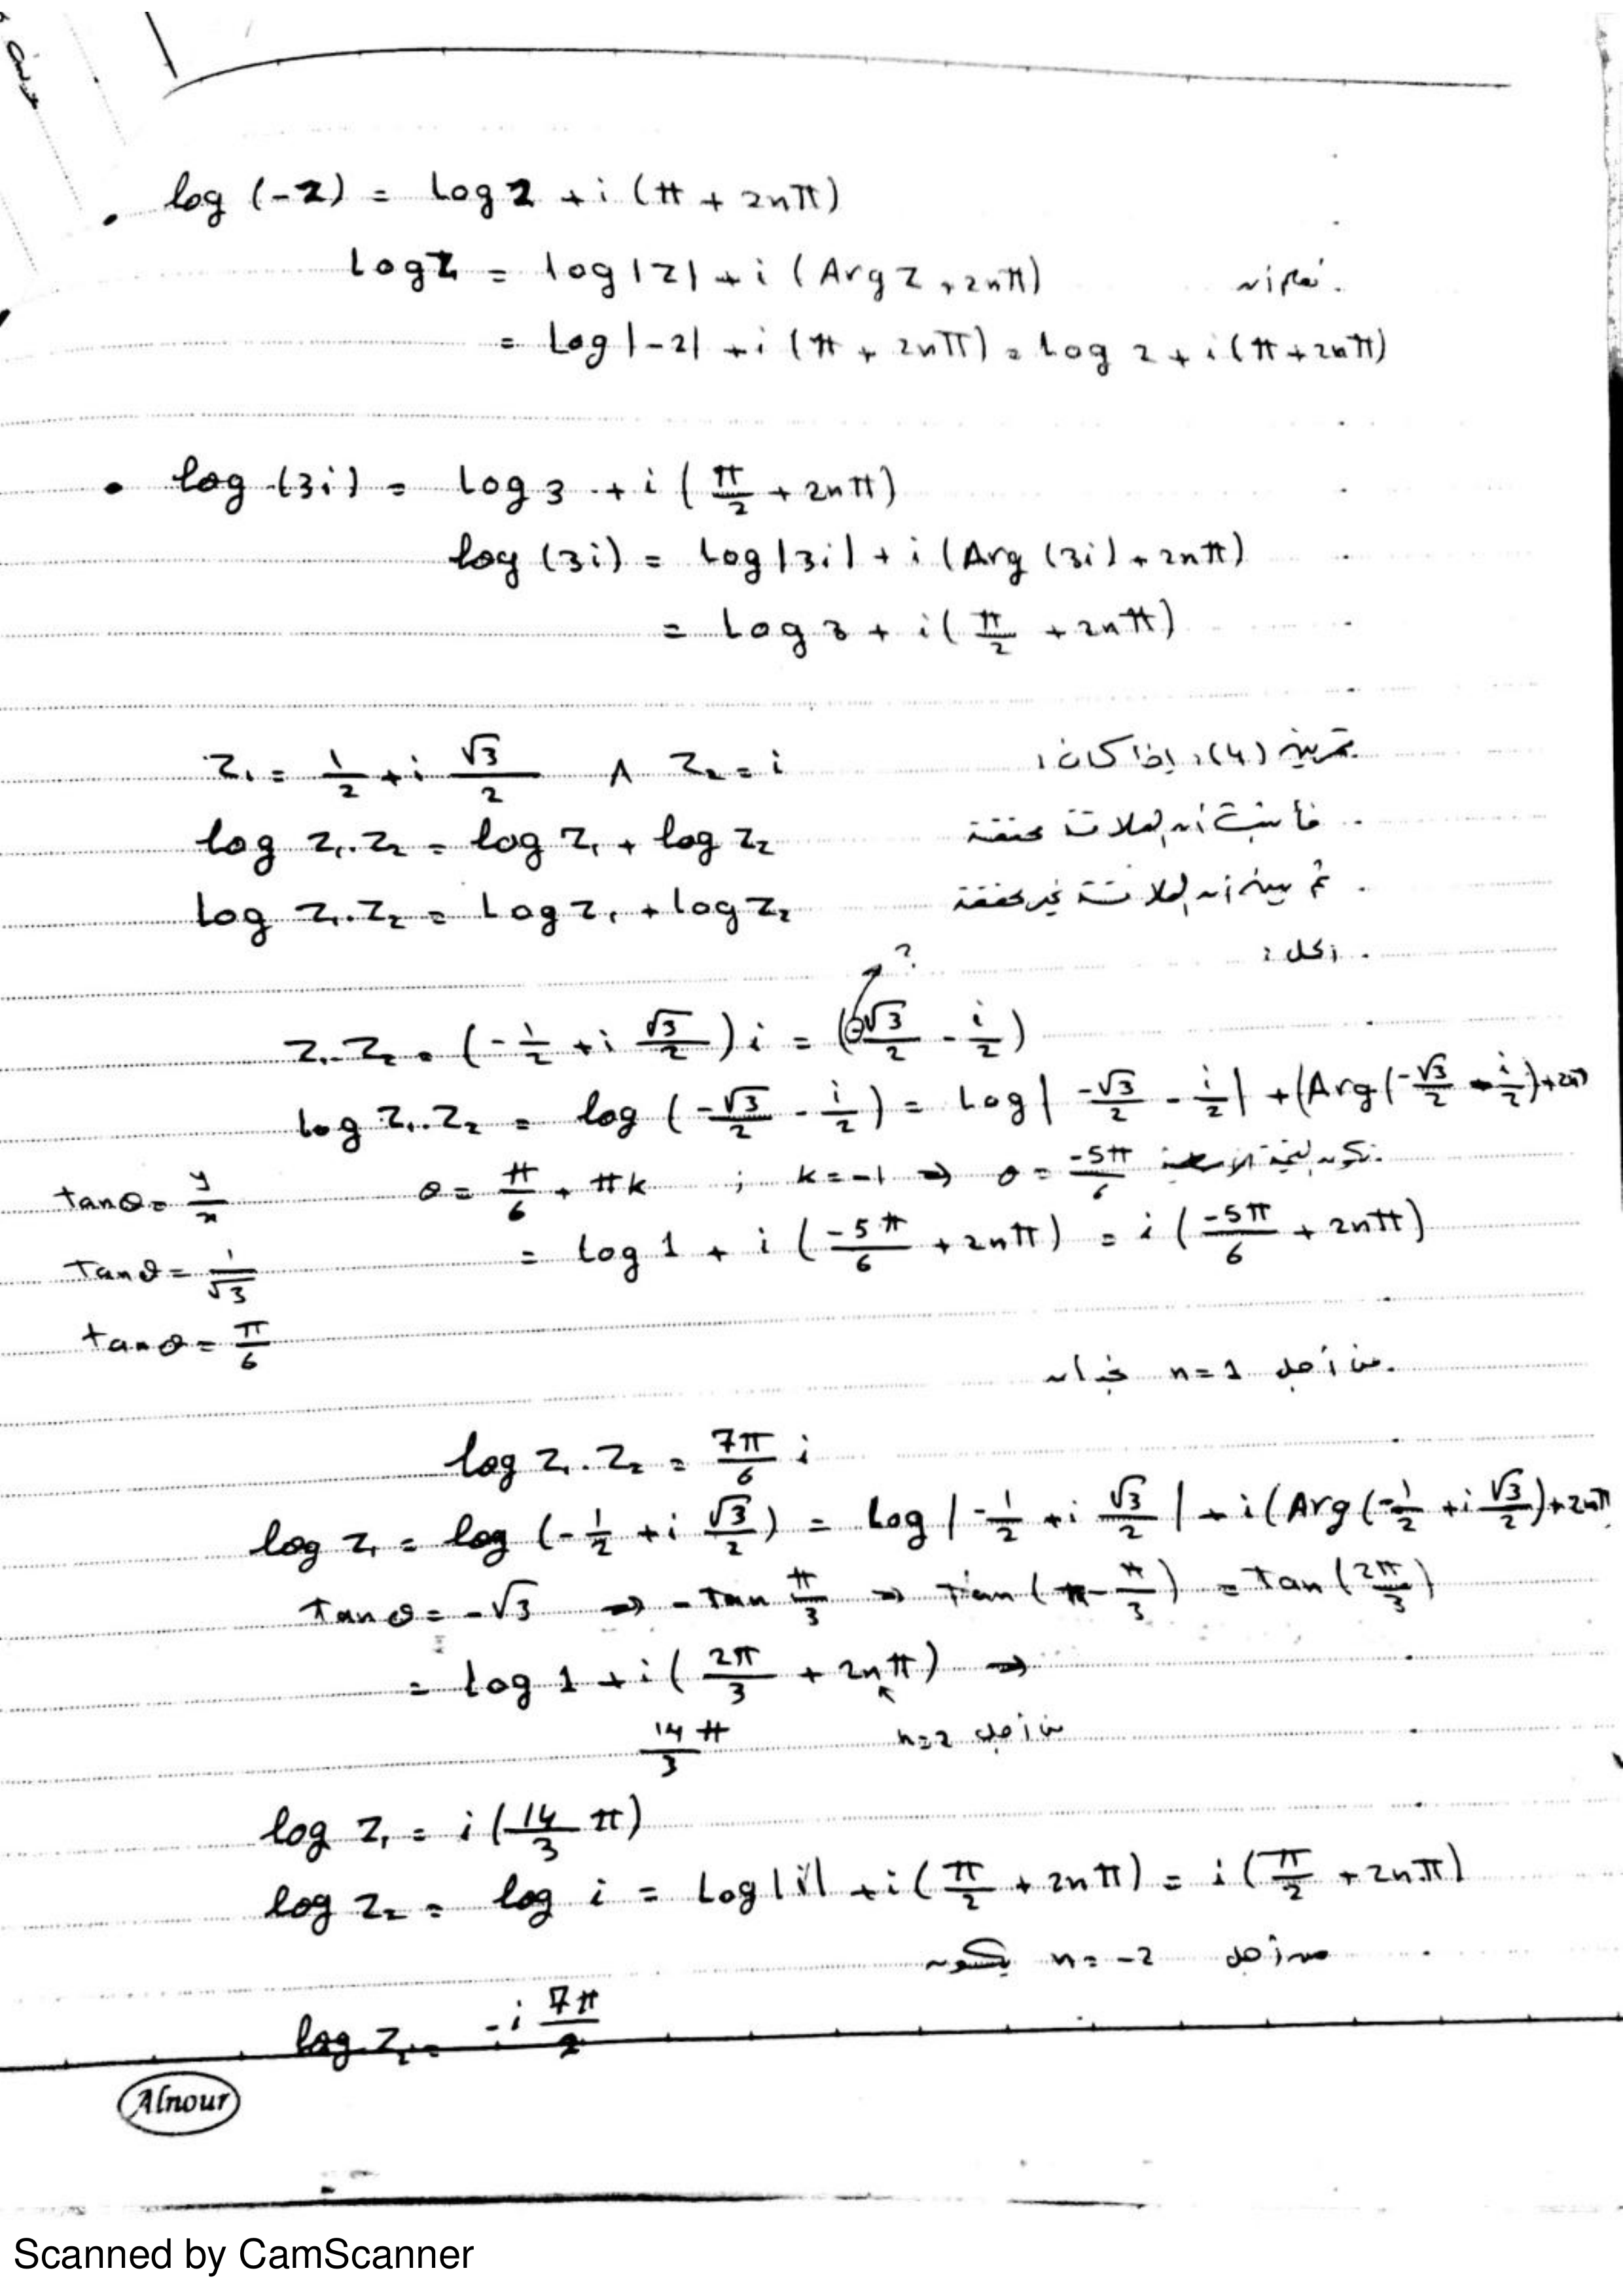 • log (-2) = Log 2 + i (π + 2nπ)
Log z = log |z| + i (Arg z + 2nπ)
= Log |-2| + i (π + 2nπ) = Log 2 + i (π + 2nπ)
• log (3i) = Log 3 + i (π/2 + 2nπ)
log (3i) = Log |3i| + i (Arg (3i) + 2nπ)
= Log 3 + i (π/2 + 2nπ)
تمرين (4): إذا كان: z₁ = 1/2 + i √3/2 ∧ z₂ = i
فأثبت أن العلاقة محققة log z₁.z₂ = log z₁ + log z₂
ثم بين أن العلاقة غير محققة Log z₁.z₂ = Log z₁ + Log z₂
الحل:
?
z₁.z₂ = (-1/2 + i √3/2) i = (-√3/2 - i/2)
log z₁.z₂ = log (-√3/2 - i/2) = Log |-√3/2 - i/2| + (Arg (-√3/2 - i/2) + 2nπ)
tan θ = y/x θ = π/6 + πk ; k = -1 ⇒ θ = -5π/6
= Log 1 + i (-5π/6 + 2nπ) = i (-5π/6 + 2nπ)
Tan θ = 1/√3
tan θ = π/6
من أجل n = 1
log z₁.z₂ = 7π/6 i
log z₁ = log (-1/2 + i √3/2) = Log |-1/2 + i √3/2| + i (Arg (-1/2 + i √3/2) + 2nπ)
Tan θ = -√3 ⇒ -Tan π/3 ⇒ Tan (π - π/3) = Tan (2π/3)
= Log 1 + i (2π/3 + 2nπ) ⇒
14π/3 من أجل n = 2
log z₁ = i (14/3 π)
log z₂ = log i = Log |i| + i (π/2 + 2nπ) = i (π/2 + 2nπ)
من أجل n = -2 يكون
log z₂ = -i 7π/2
Alnour
Scanned by CamScanner